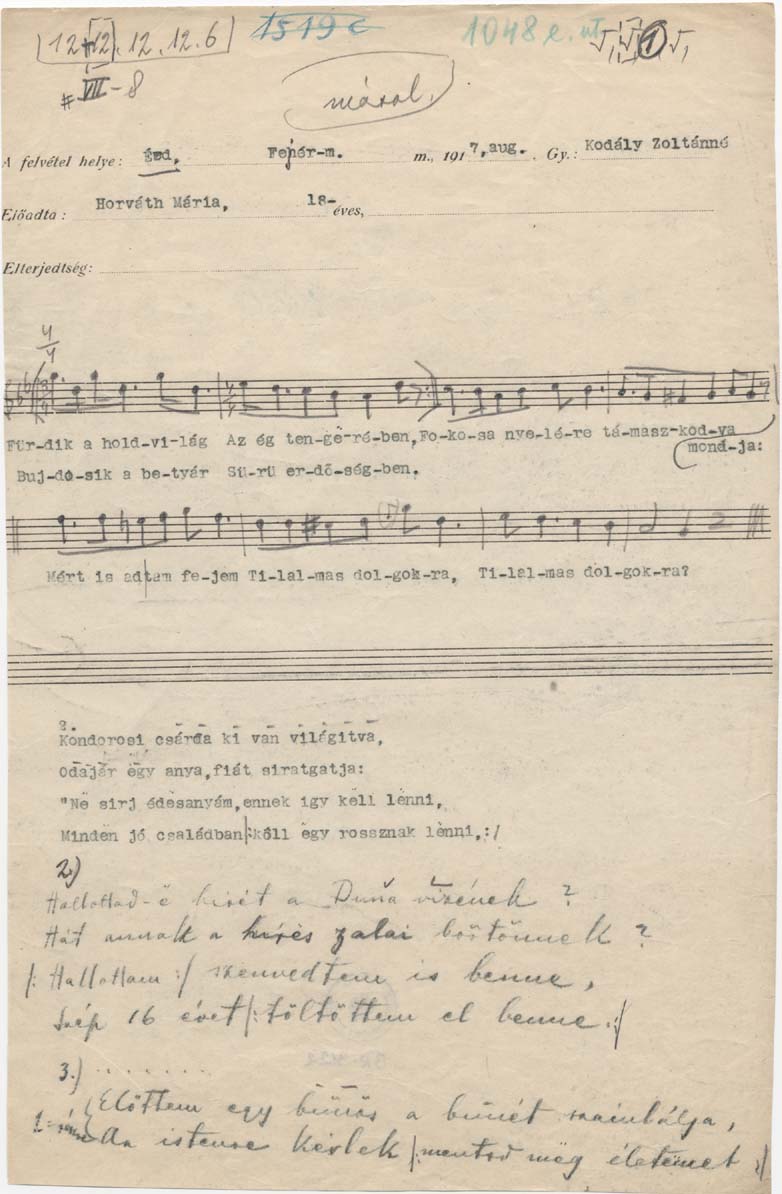 12+12.12.12.6 1519c 1048 e.
# VII-8
másol.
A felvétel helye: Érd, Fejér-m. m., 1917,aug. Gy.: Kodály Zoltánné
Előadta: Horváth Mária, 18-éves,
Elterjedtség:
4/4
Für-dik a hold-vi-lág Az ég ten-gë-ré-ben,Fo-ko-sa nye-lé-re tá-masz-kod-va
mond-ja:
Buj-do-sik a be-tyár Sü-rü er-dő-ség-ben.
Mért is adtam fe-jem Ti-lal-mas dol-gok-ra, Ti-lal-mas dol-gok-ra?
2.
Kondorosi csárda ki van világitva,
Odajár ëgy anya,fiát siratgatja:
"Në sirj édësanyám,ennek igy këll lënni,
Mindën jó családban/:këll ëgy rossznak lënni,:/
2.)
Hallottad-ë hirét a Duna vizének ?
Hát annak a hirës zalai börtönnek ?
/: Hallottam :/ szenvedtem is benne,
Szép 16 évet /: töltöttem el benne :/
3.) . . . . . . .
Előttem egy bűnös a bűnét számlálja,
Az istenre kérlek /: mentsd meg életemet :/